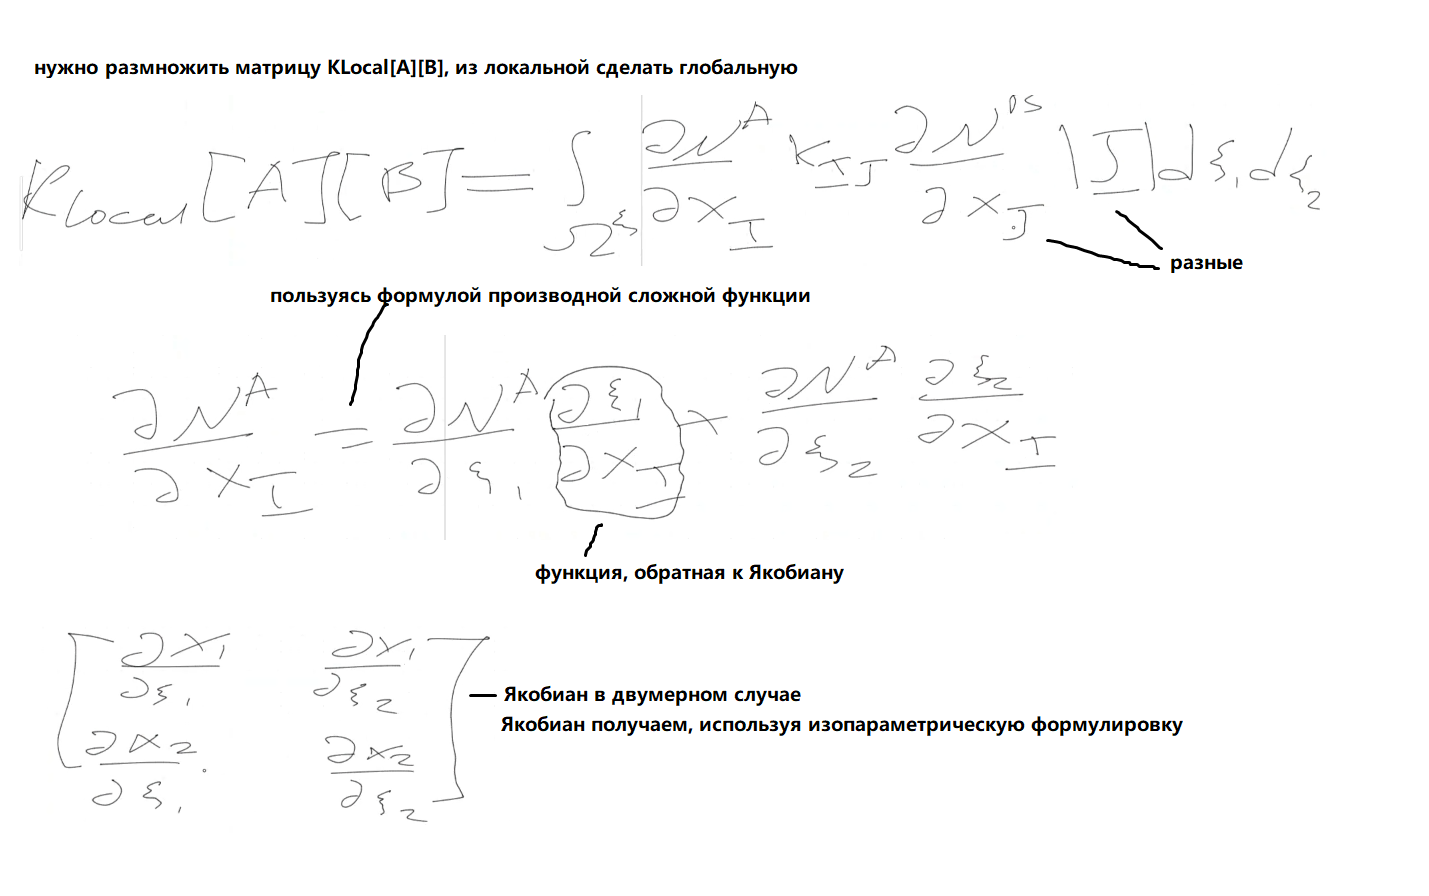 нужно размножить матрицу KLocal[A][B], из локальной сделать глобальную
K_Local [A][B] = ∫_Ω^ξ ∂N^A/∂x_I k_IJ ∂N^B/∂x_J |J| dξ_1 dξ_2
разные
пользуясь формулой производной сложной функции
∂N^A/∂x_I = ∂N^A/∂ξ_1 ∂ξ_1/∂x_I + ∂N^A/∂ξ_2 ∂ξ_2/∂x_I
функция, обратная к Якобиану
[∂x_1/∂ξ_1 ∂x_1/∂ξ_2
∂x_2/∂ξ_1 ∂x_2/∂ξ_2]
Якобиан в двумерном случае
Якобиан получаем, используя изопараметрическую формулировку